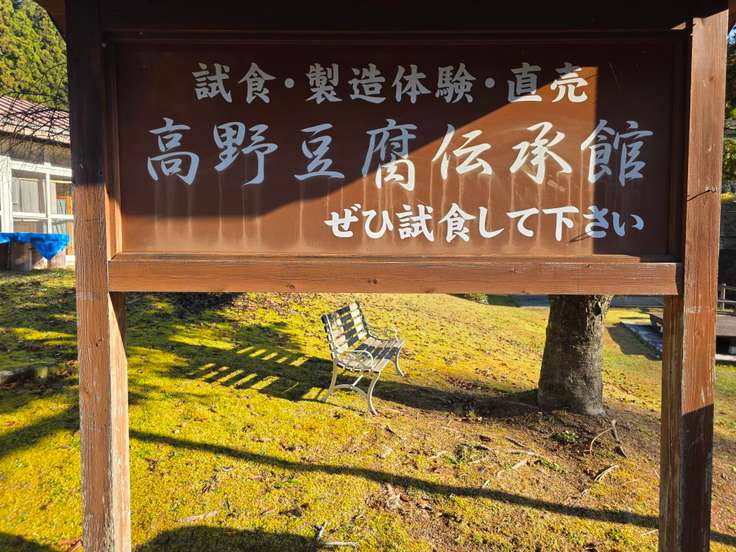 試食・製造体験・直売
高野豆腐伝承館
ぜひ試食して下さい